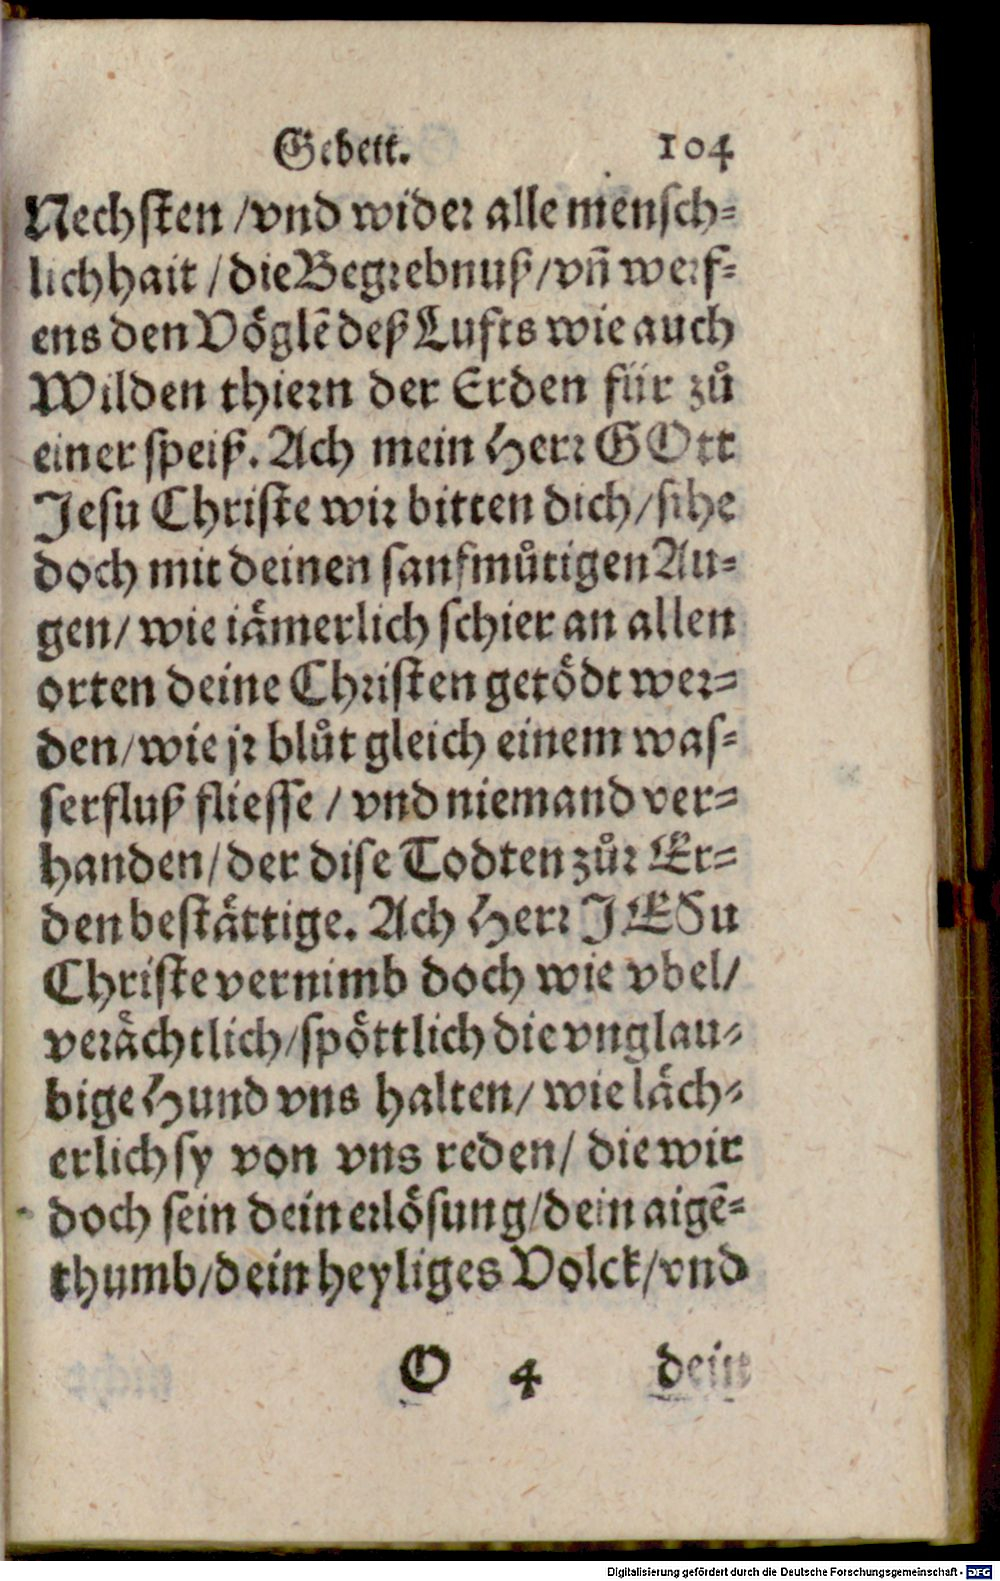 Gebett. 104
Nechsten / vnd wider alle mensch-
lichhait / die Begrebnuß / vn̄ werf-
ens den Vöglē deß Lufts wie auch
Wilden thiern der Erden für zů
einer speiß. Ach mein Herr GOtt
Jesu Christe wir bitten dich / sihe
doch mit deinen sanfmůtigen Au-
gen / wie iämerlich schier an allen
orten deine Christen getödt wer-
den / wie jr blůt gleich einem was-
serfluß fliesse / vnd niemand ver-
handen / der dise Todten zůr Er-
den bestättige. Ach Herr JESu
Christe vernimb doch wie vbel /
verächtlich / spöttlich die vnglau-
bige Hund vns halten / wie läch-
erlich sy von vns reden / die wir
doch sein dein erlösung / dein aigē-
thumb / dein heyliges Volck / vnd
O 4 dein
Digitalisierung gefördert durch die Deutsche Forschungsgemeinschaft - DFG